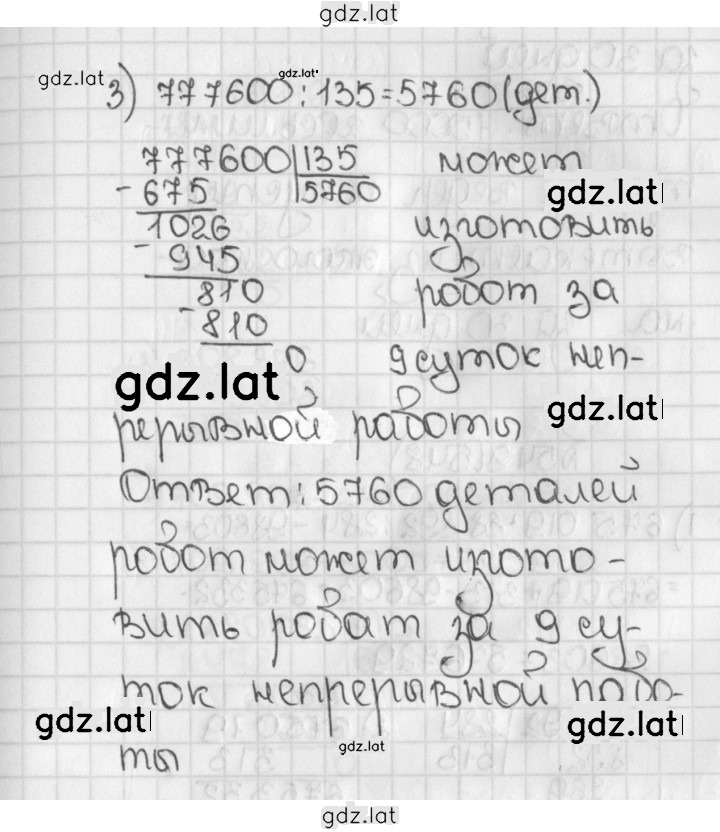 gdz.lat
gdz.lat 3) 777600:135=5760(дет.)
gdz.lat
777600|135 может
-675 |5760 gdz.lat
1026 изготовить
-945
810 робот за
-810
0 9 суток неп-
gdz.lat gdz.lat
рерывной работы
Ответ: 5760 деталей
робот может изгото-
вить робат за 9 су-
ток непрерывной подо-
gdz.lat gdz.lat gdz.lat
ты
gdz.lat